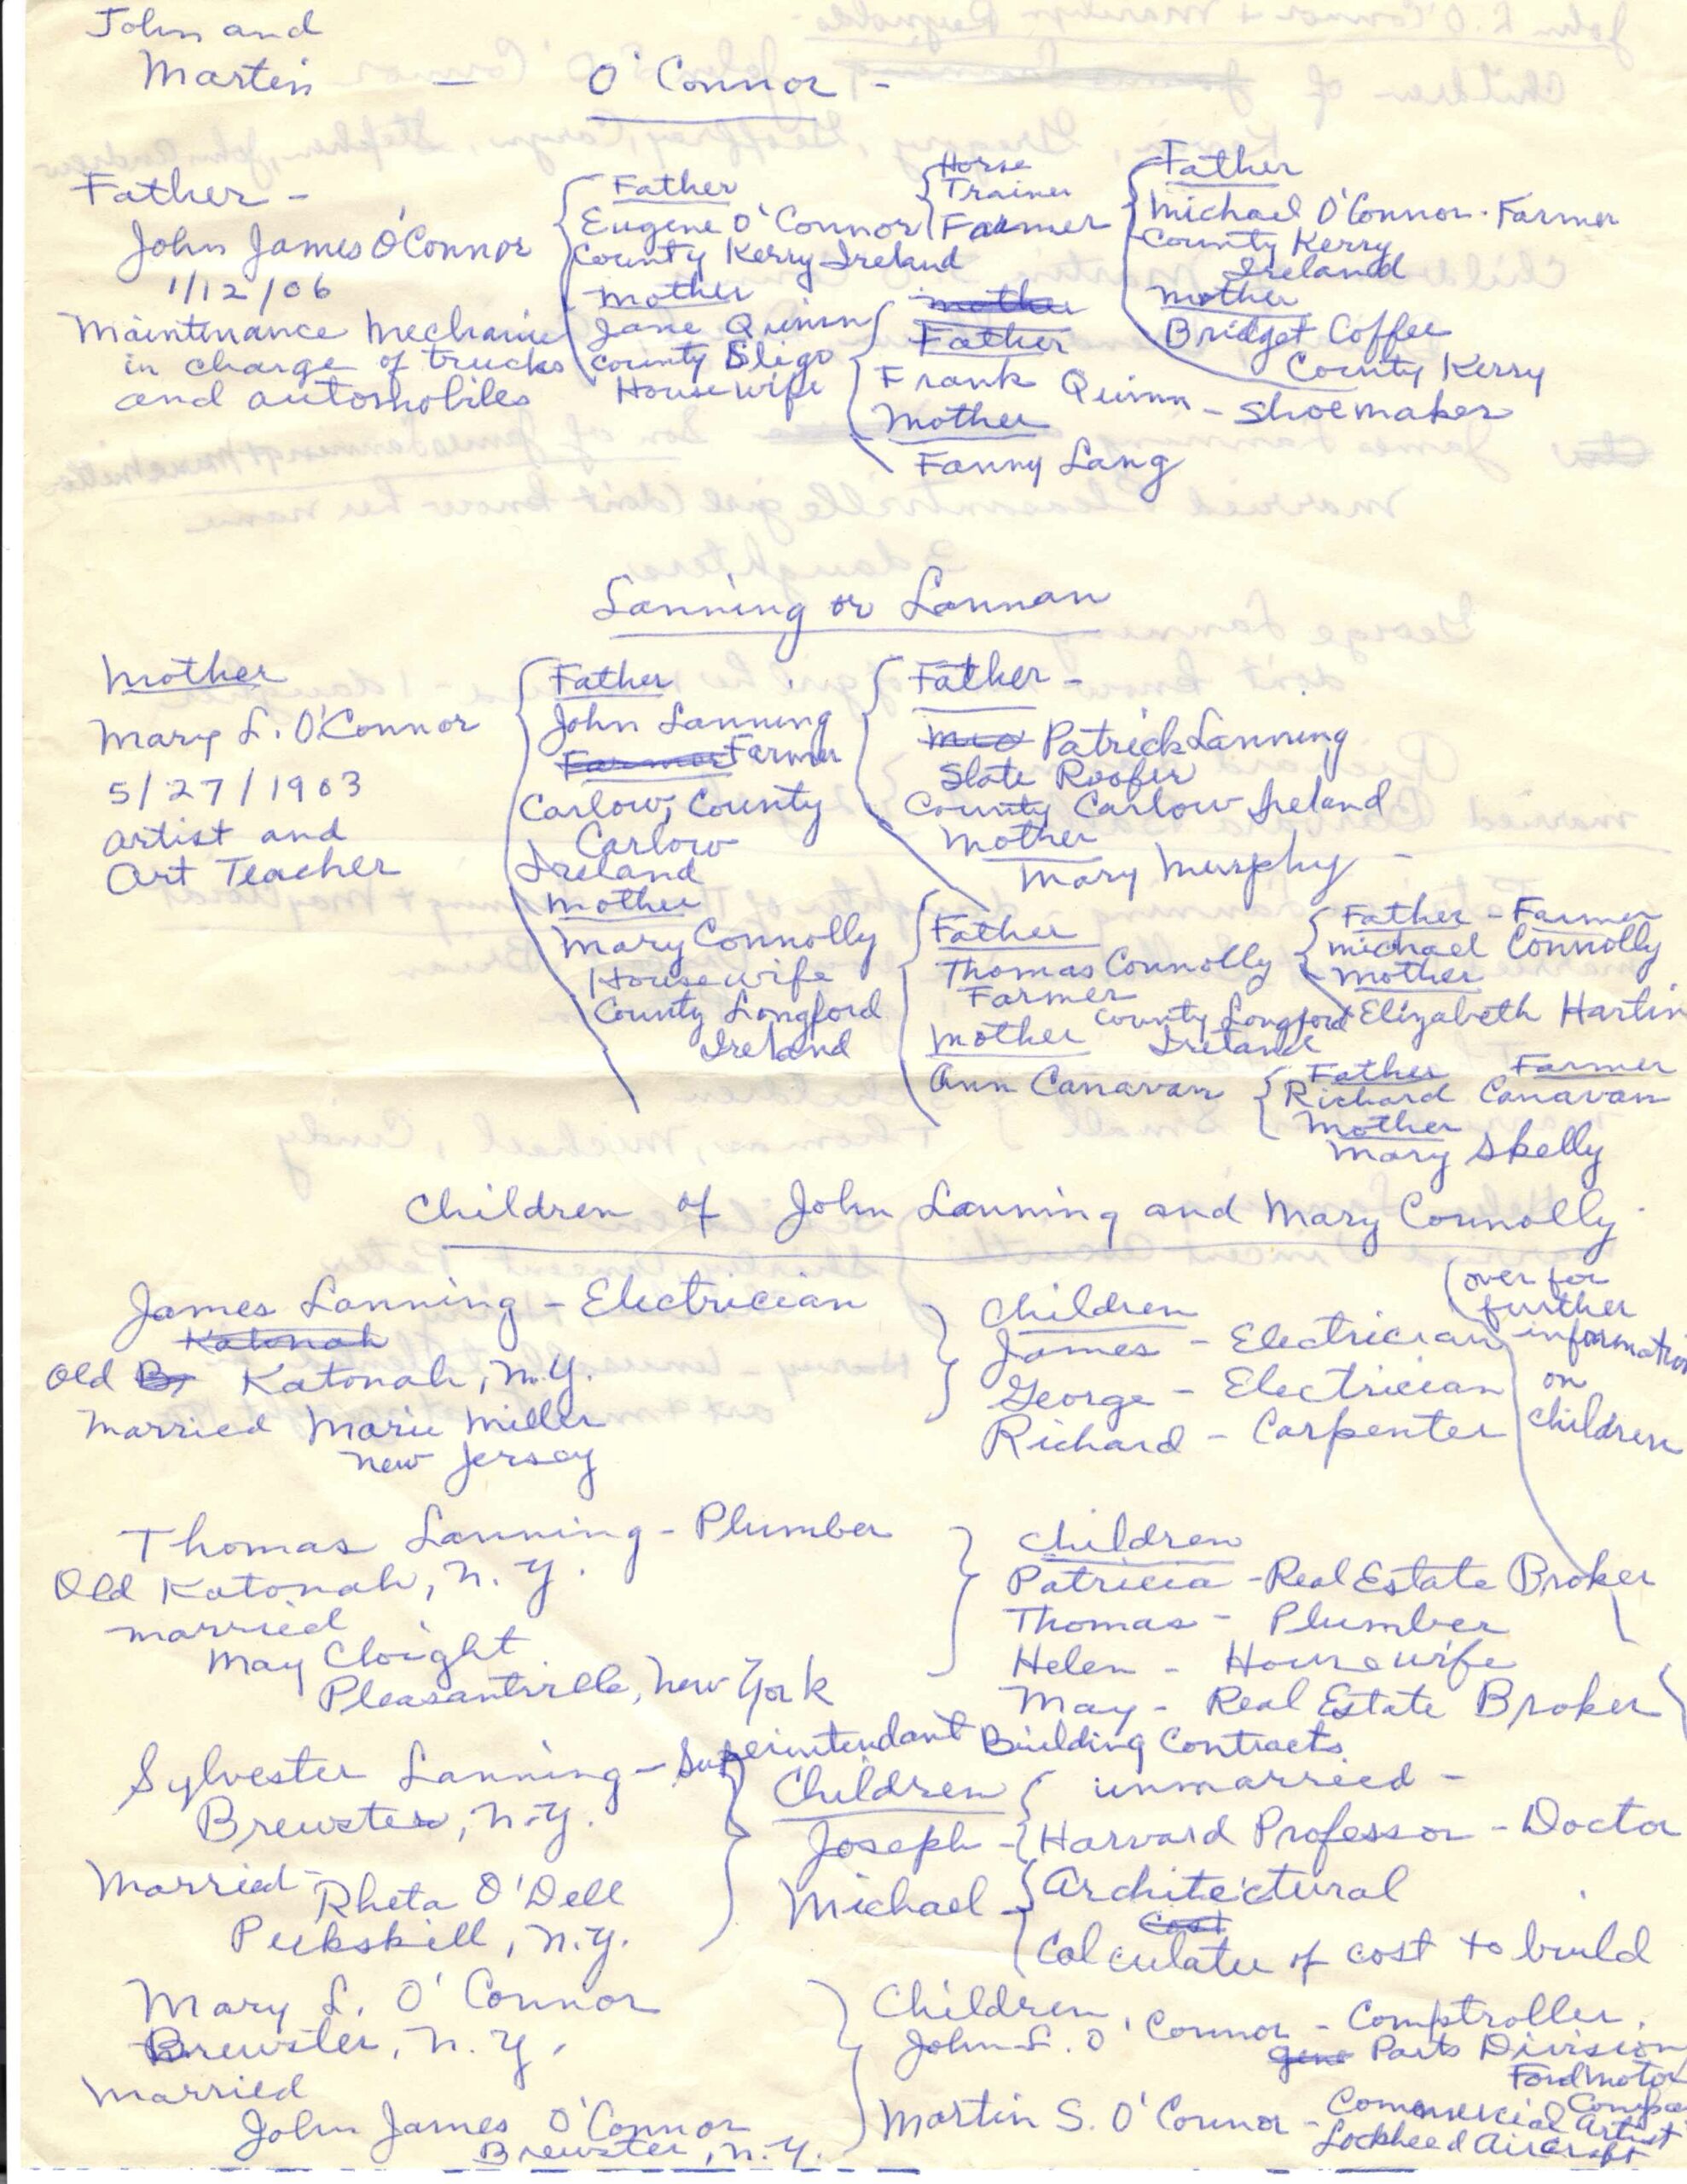 John and
Martin - O'Connor -
Father -
John James O'Connor
1/12/06
Maintenance Mechanic
in charge of trucks
and automobiles
Father
Eugene O'Connor
County Kerry Ireland
Mother
Jane Quinn
County Sligo
Housewife
Horse
Trainer
Farmer
Father
Michael O'Connor - Farmer
County Kerry
Ireland
Mother
Bridget Coffee
County Kerry
mother
Father
Frank Quinn - Shoemaker
Mother
Fanny Lang
Lanning or Lannan
Mother
Mary L. O'Connor
5/27/1903
Artist and
Art Teacher
Father
John Lanning
Farmer Farmer
Carlow, County
Carlow
Ireland
Mother
Mary Connolly
Housewife
County Longford
Ireland
Father -
Patrick Lanning
Slate Roofer
County Carlow Ireland
Mother
Mary Murphy -
Father
Thomas Connolly
Farmer
County Longford
Ireland
Mother
Ann Canavan
Father - Farmer
Michael Connolly
Mother
Elizabeth Hartin
Father Farmer
Richard Canavan
Mother
Mary Skelly
Children of John Lanning and Mary Connolly
(over for
further
information
on
children
James Lanning - Electrician
Katonah
Old B, Katonah, N.Y.
Married Marie Miller
New Jersey
Children
James - Electrician
George - Electrician
Richard - Carpenter
Thomas Lanning - Plumber
Old Katonah, N.Y.
married
May Cloight
Pleasantville, New York
Children
Patricia - Real Estate Broker
Thomas - Plumber
Helen - Housewife
May - Real Estate Broker
Sylvester Lanning - Superintendant Building Contracts
Brewster, N.Y.
Married - Rheta O'Dell
Peekskill, N.Y.
Children
unmarried -
Joseph - Harvard Professor - Docto
Michael - Architectural
Cost
Calculator of cost to build
Mary L. O'Connor
Brewster, N.Y.
Married
John James O'Connor
Brewster, N.Y.
Children
John L. O'Connor - Comptroller,
gene Parts Division
Ford Motor
Compa
Martin S. O'Connor - Commercial Artist
Lockheed Aircraft